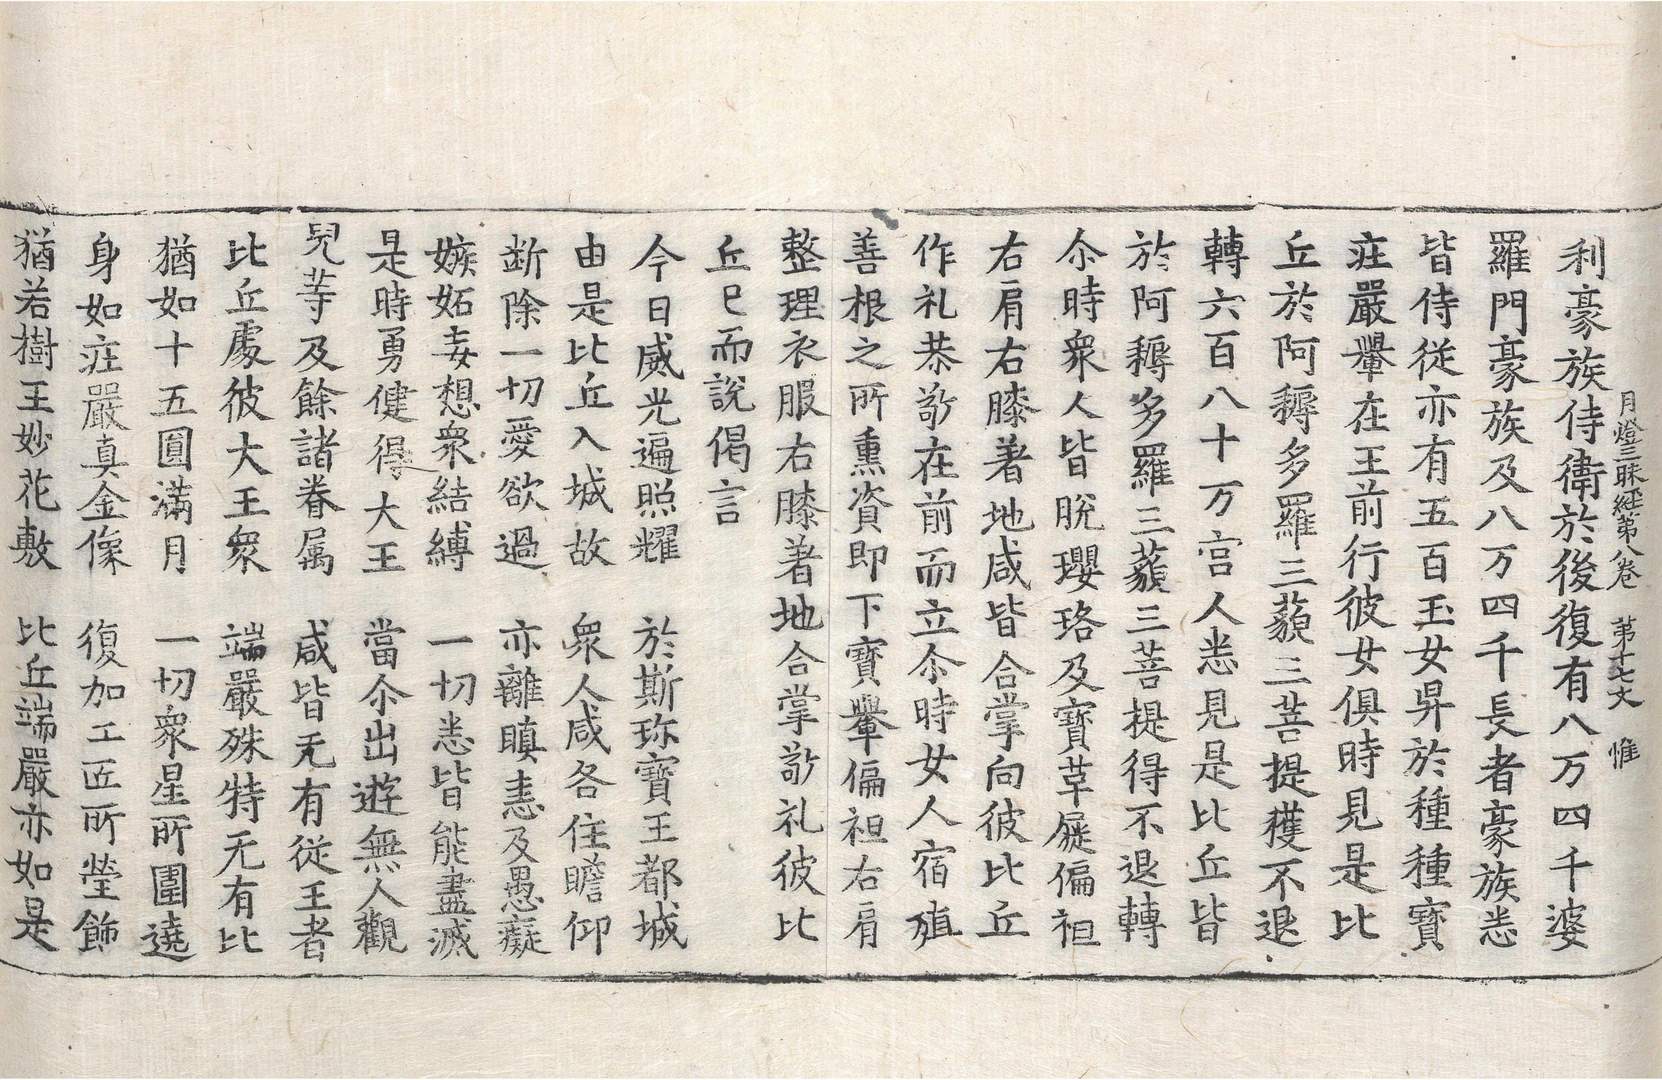 月燈三昧經第八卷　第十七丈　惟
利豪族侍衛於後復有八万四千婆
羅門豪族及八万四千長者豪族悉
皆侍從亦有五百玉女昇於種種寶
疰嚴轝在王前行彼女俱時見是比
丘於阿耨多羅三藐三菩提獲不退
轉六百八十万宫人悉見是比丘皆
於阿耨多羅三藐三菩提得不退轉
尒時衆人皆脫瓔珞及寶草屣偏袒
右肩右膝著地咸皆合掌向彼比丘
作礼恭敬在前而立尒時女人宿殖
善根之所熏資即下寶轝偏袒右肩
整理衣服右膝著地合掌敬礼彼比
丘已而說偈言
今日威光遍照耀　於斯珎寶王都城
由是比丘入城故　衆人咸各住瞻仰
断除一切愛欲過　亦離瞋恚及愚癡
嫉妬妄想衆結縛　一切悉皆能盡滅
是時勇健得大王　當尒出遊無人觀
兒等及餘諸眷属　咸皆无有從王者
比丘處彼大王衆　端嚴殊特无有比
猶如十五圓滿月　一切衆星所圍遶
身如疰嚴真金像　復加工匠所瑩飾
猶若樹王妙花敷　比丘端嚴亦如是